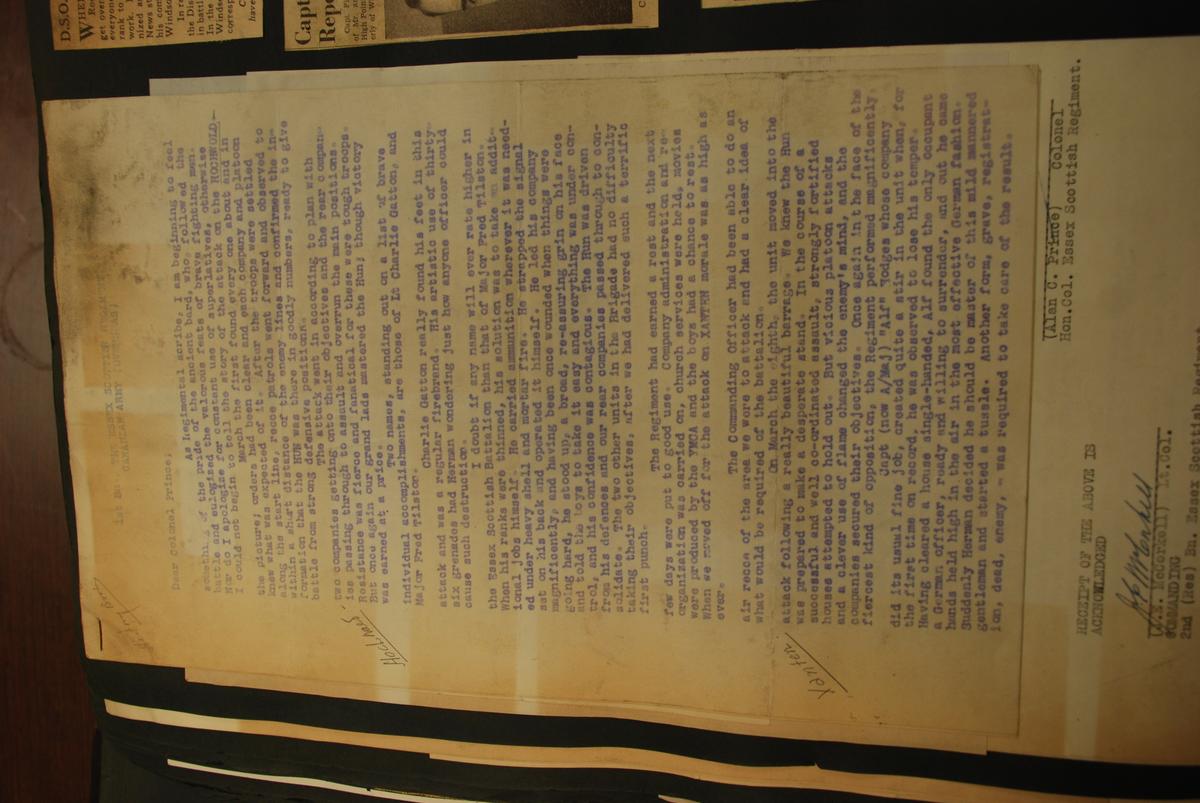 D.S.O.
WHEN
get over
everyone
rank to
work.
nized a
News st
his com
Windsor
In re
the Dis
in battl
In the
Windsor
corresp
C
have
Capt
Repo
Capt. F
of Mr.
High Poin
erly of W
1st Bn. THE ESSEX SCOTTISH REGIMENT
CANADIAN ARMY (OVERSEAS)
Dear Colonel Prince;
As Regimental scribe, I am beginning to feel
something of the pride of the ancient bard, who followed the
battle and eulogized the valorous feats of brave fighting men.
Nor do I apologize for constant use of superlatives, otherwise
I could not begin to tell the story of the attack on the HOCHWALD
March the first found every one about and in
the picture; orders had been clear and each company and platoon
knew what was expected of it. After the troops were settled
along the start line, recce patrols went forward and observed to
within a short distance of the enemy lines and confirmed the in-
formation that the HUN was there in goodly numbers, ready to give
battle from strong defensive positions.
The attack went in according to plan with
two companies getting onto their objectives and the rear compan-
ies passing through to assault and overrun the main positions.
Resistance was fierce and fanatical for these were tough troops.
But once again our grand lads mastered the Hun; though victory
was earned at a price.
Two names, standing out on a list of brave
individual accomplishments, are those of Lt Charlie Gatton, and
Major Fred Tilston.
Charlie Gatton really found his feet in this
attack and was a regular firebrand. His artistic use of thirty-
six grenades had Herman wondering just how anyone officer could
cause such destruction.
I doubt if any name will ever rate higher in
the Essex Scottish Battalion than that of Major Fred Tilston.
When his ranks were thinned, his solution was to take on addit-
ional jobs himself. He carried ammunition wherever it was need-
ed under heavy shell and mortar fire. He strapped the signal
set on his back and operated it himself. He led his company
magnificently, and having been once wounded when things were
going hard, he stood up, a broad, re-assuring grin on his face
and told the boys to take it easy and everything was under con-
trol, and his confidence was contagious. The Hun was driven
from his defences and our rear companies passed through to con-
solidate. The two other units in the Brigade had no difficulty
taking their objectives, after we had delivered such a terrific
first punch.
The Regiment had earned a rest and the next
few days were put to good use. Company administration and re-
organization was carried on, church services were held, movies
were produced by the YMCA and the boys had a chance to rest.
When we moved off for the attack on XANTEN morale was as high as
ever.
The Commanding Officer had been able to do an
air recce of the area we were to attack and had a clear idea of
what would be required of the battalion.
On March the eighth, the unit moved into the
attack following a really beautiful barrage. We knew the Hun
was prepared to make a desperate stand. In the course of a
successful and well co-ordinated assault, strongly fortified
houses attempted to hold out. But vicious platoon attacks
and a clever use of flame changed the enemy's mind, and the
companies secured their objectives. Once again in the face of the
fiercest kind of opposition, the Regiment performed magnificently.
Capt (now A/Maj) "Alf" Hodges whose company
did its usual fine job, created quite a stir in the unit when, for
the first time on record, he was observed to lose his temper.
Having cleared a house single-handed, Alf found the only occupant
a German officer, ready and willing to surrender, and out he came
hands held high in the air in the most effective German fashion.
Suddenly Herman decided he should be master of this mild mannered
gentleman and started a tussle. Another form, grave, registrat-
ion, dead, enemy, - was required to take care of the result.
Hochwald
Xanten
(Alan C. Prince) Colonel
Hon.Col. Essex Scottish Regiment.
RECEIPT OF THE ABOVE IS
ACKNOWLEDGED
Lt.Col.
COMMANDING
2nd (Res) Bn. Essex Scottish R